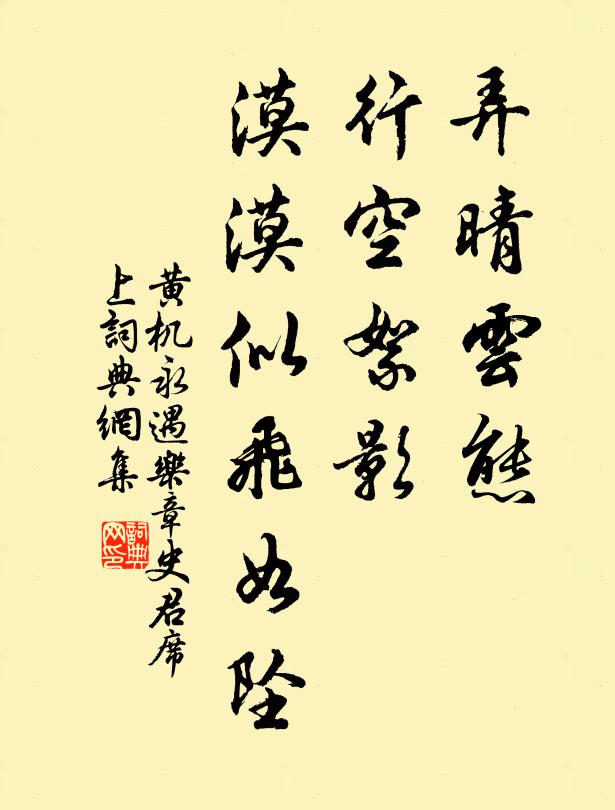 弄晴雲態
行空絮影
漠漠似飛如墜
黄机永遇樂章史君席
上詞典網集
詞典
网印